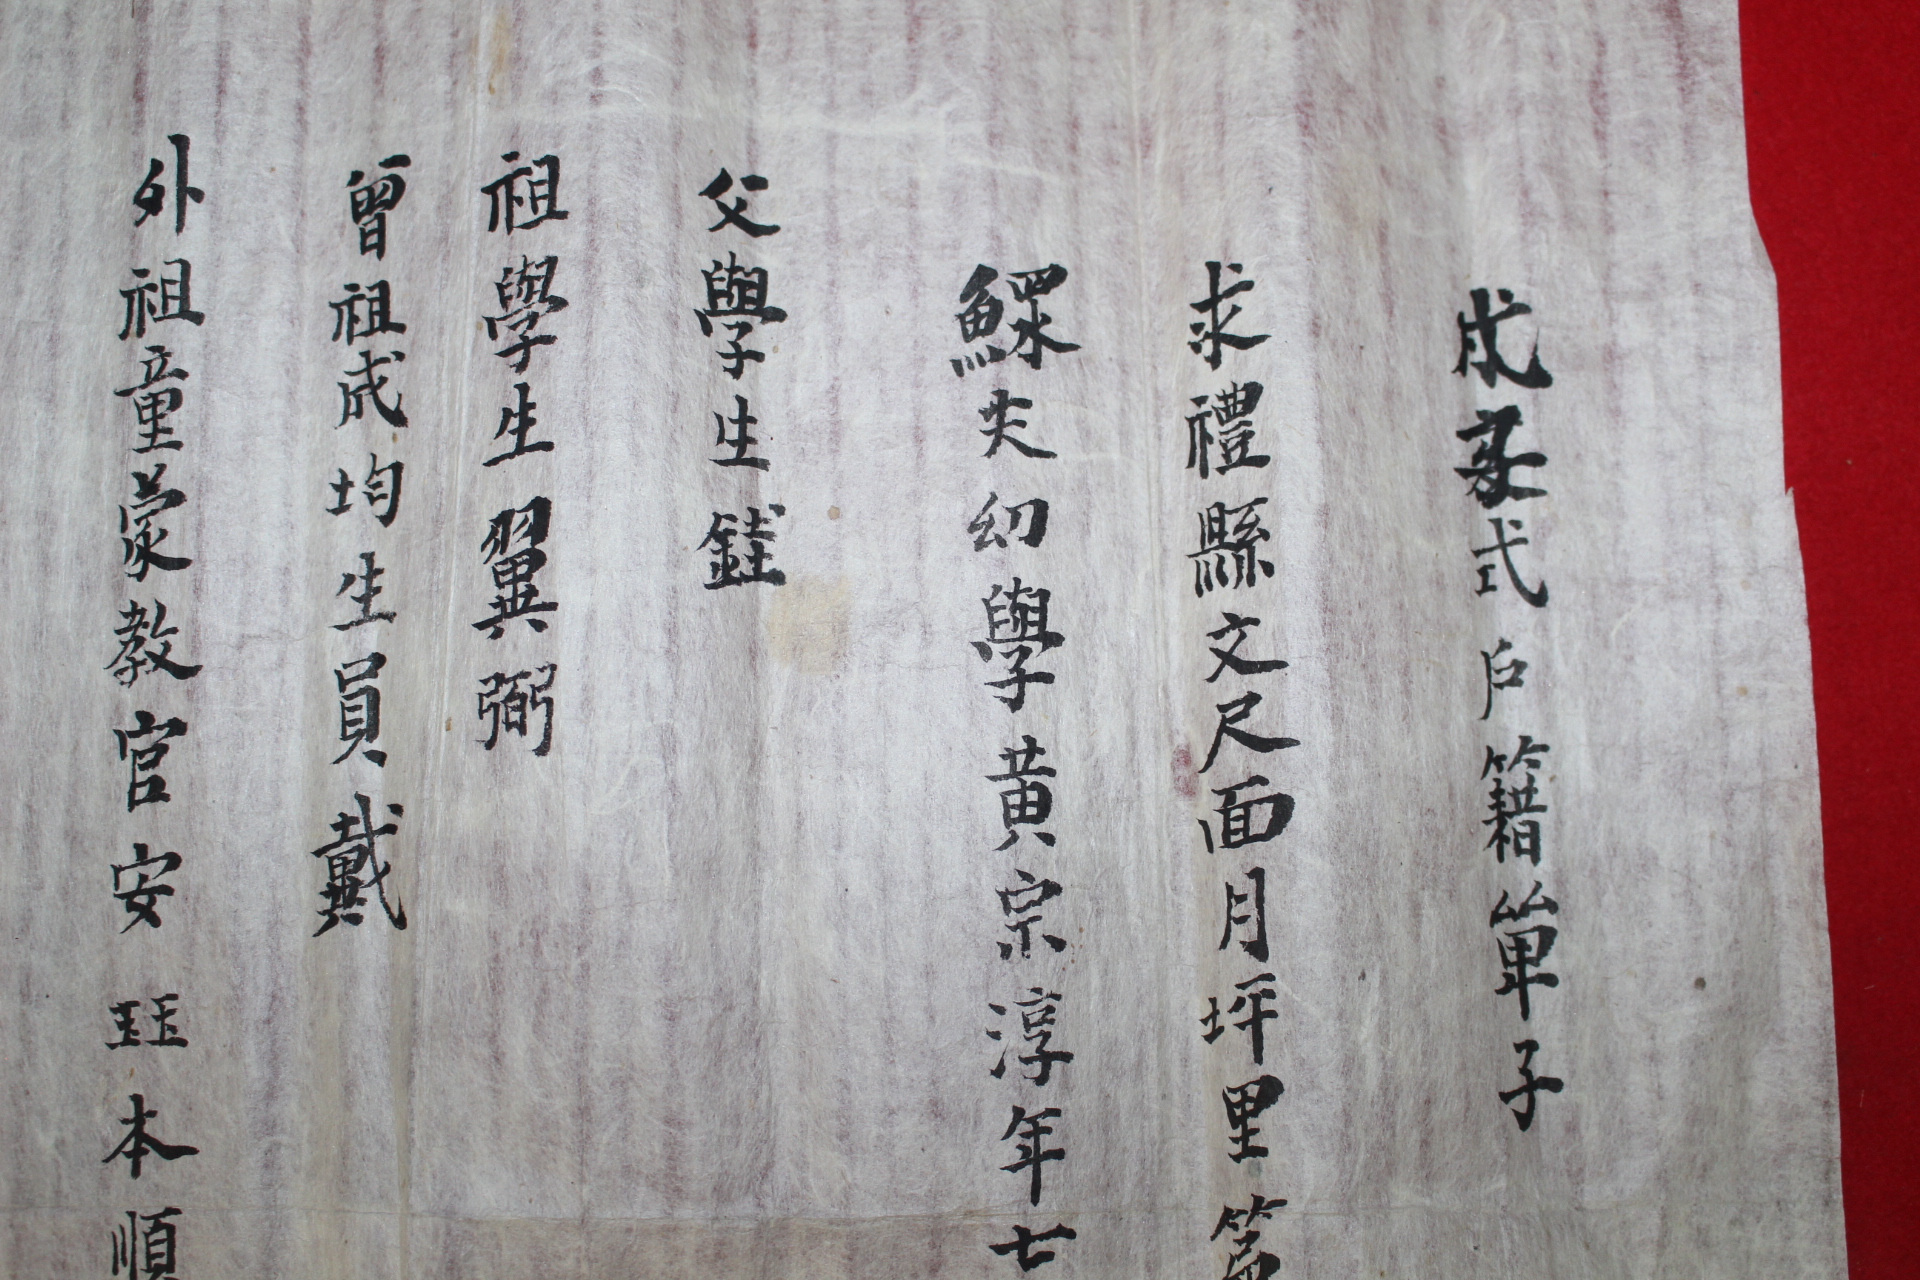 式戶籍單子
求禮縣文尺面月坪里第
鰥夫幼學黃宗淳年七
父學生
祖學生翼弼
曾祖成均生員戴
外祖童蒙教官安珏本順